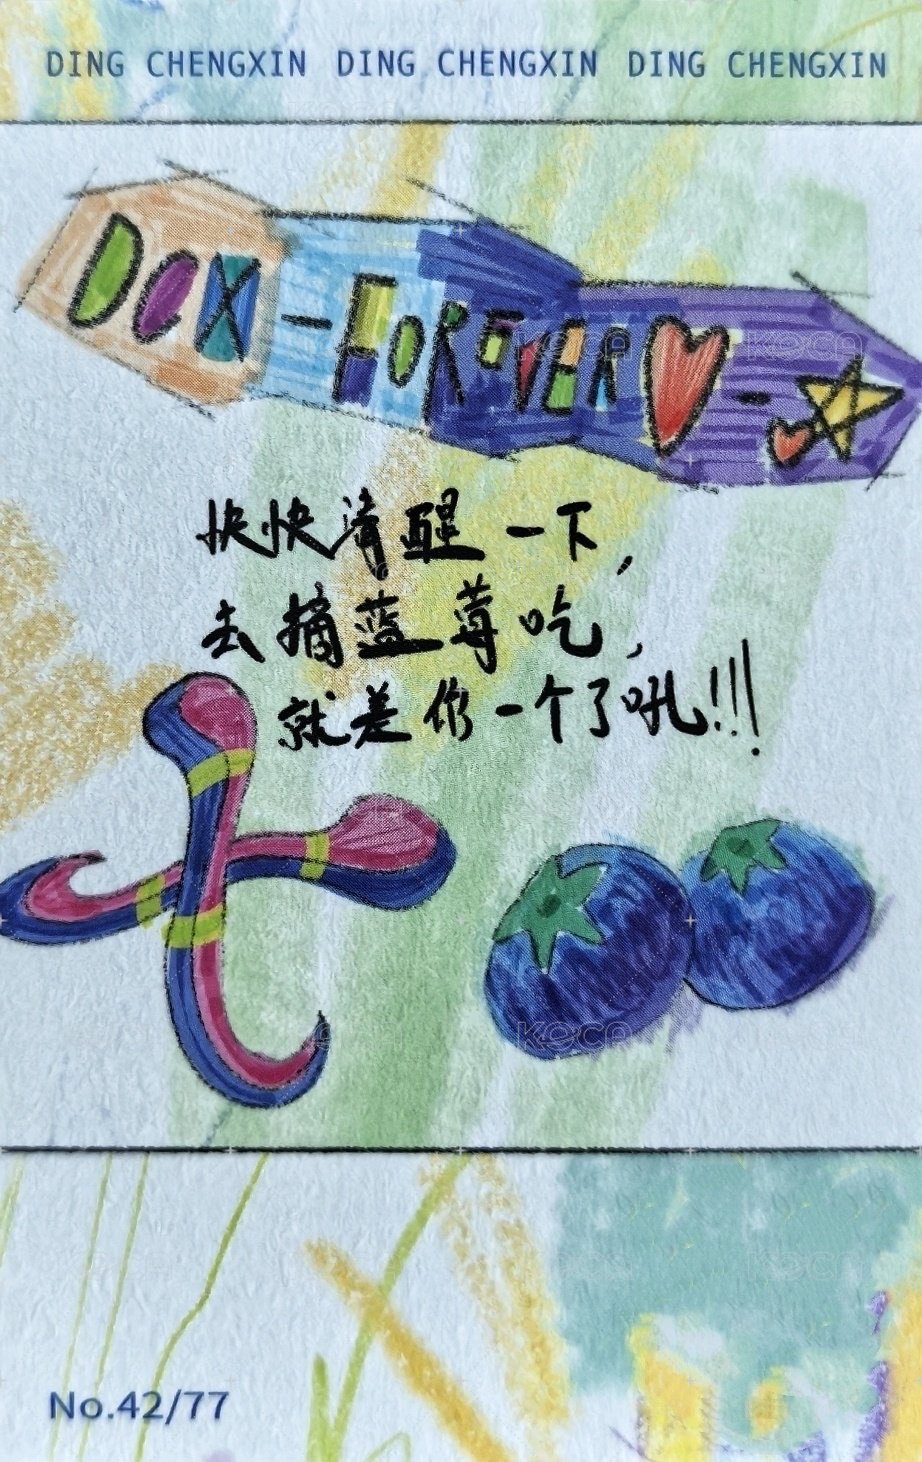 DING CHENGXIN DING CHENGXIN DING CHENGXIN
DCX-FOREVER-
快快清醒一下，
去摘蓝莓吃，
就是你一个了吼!!!
No.42/77
KOCA